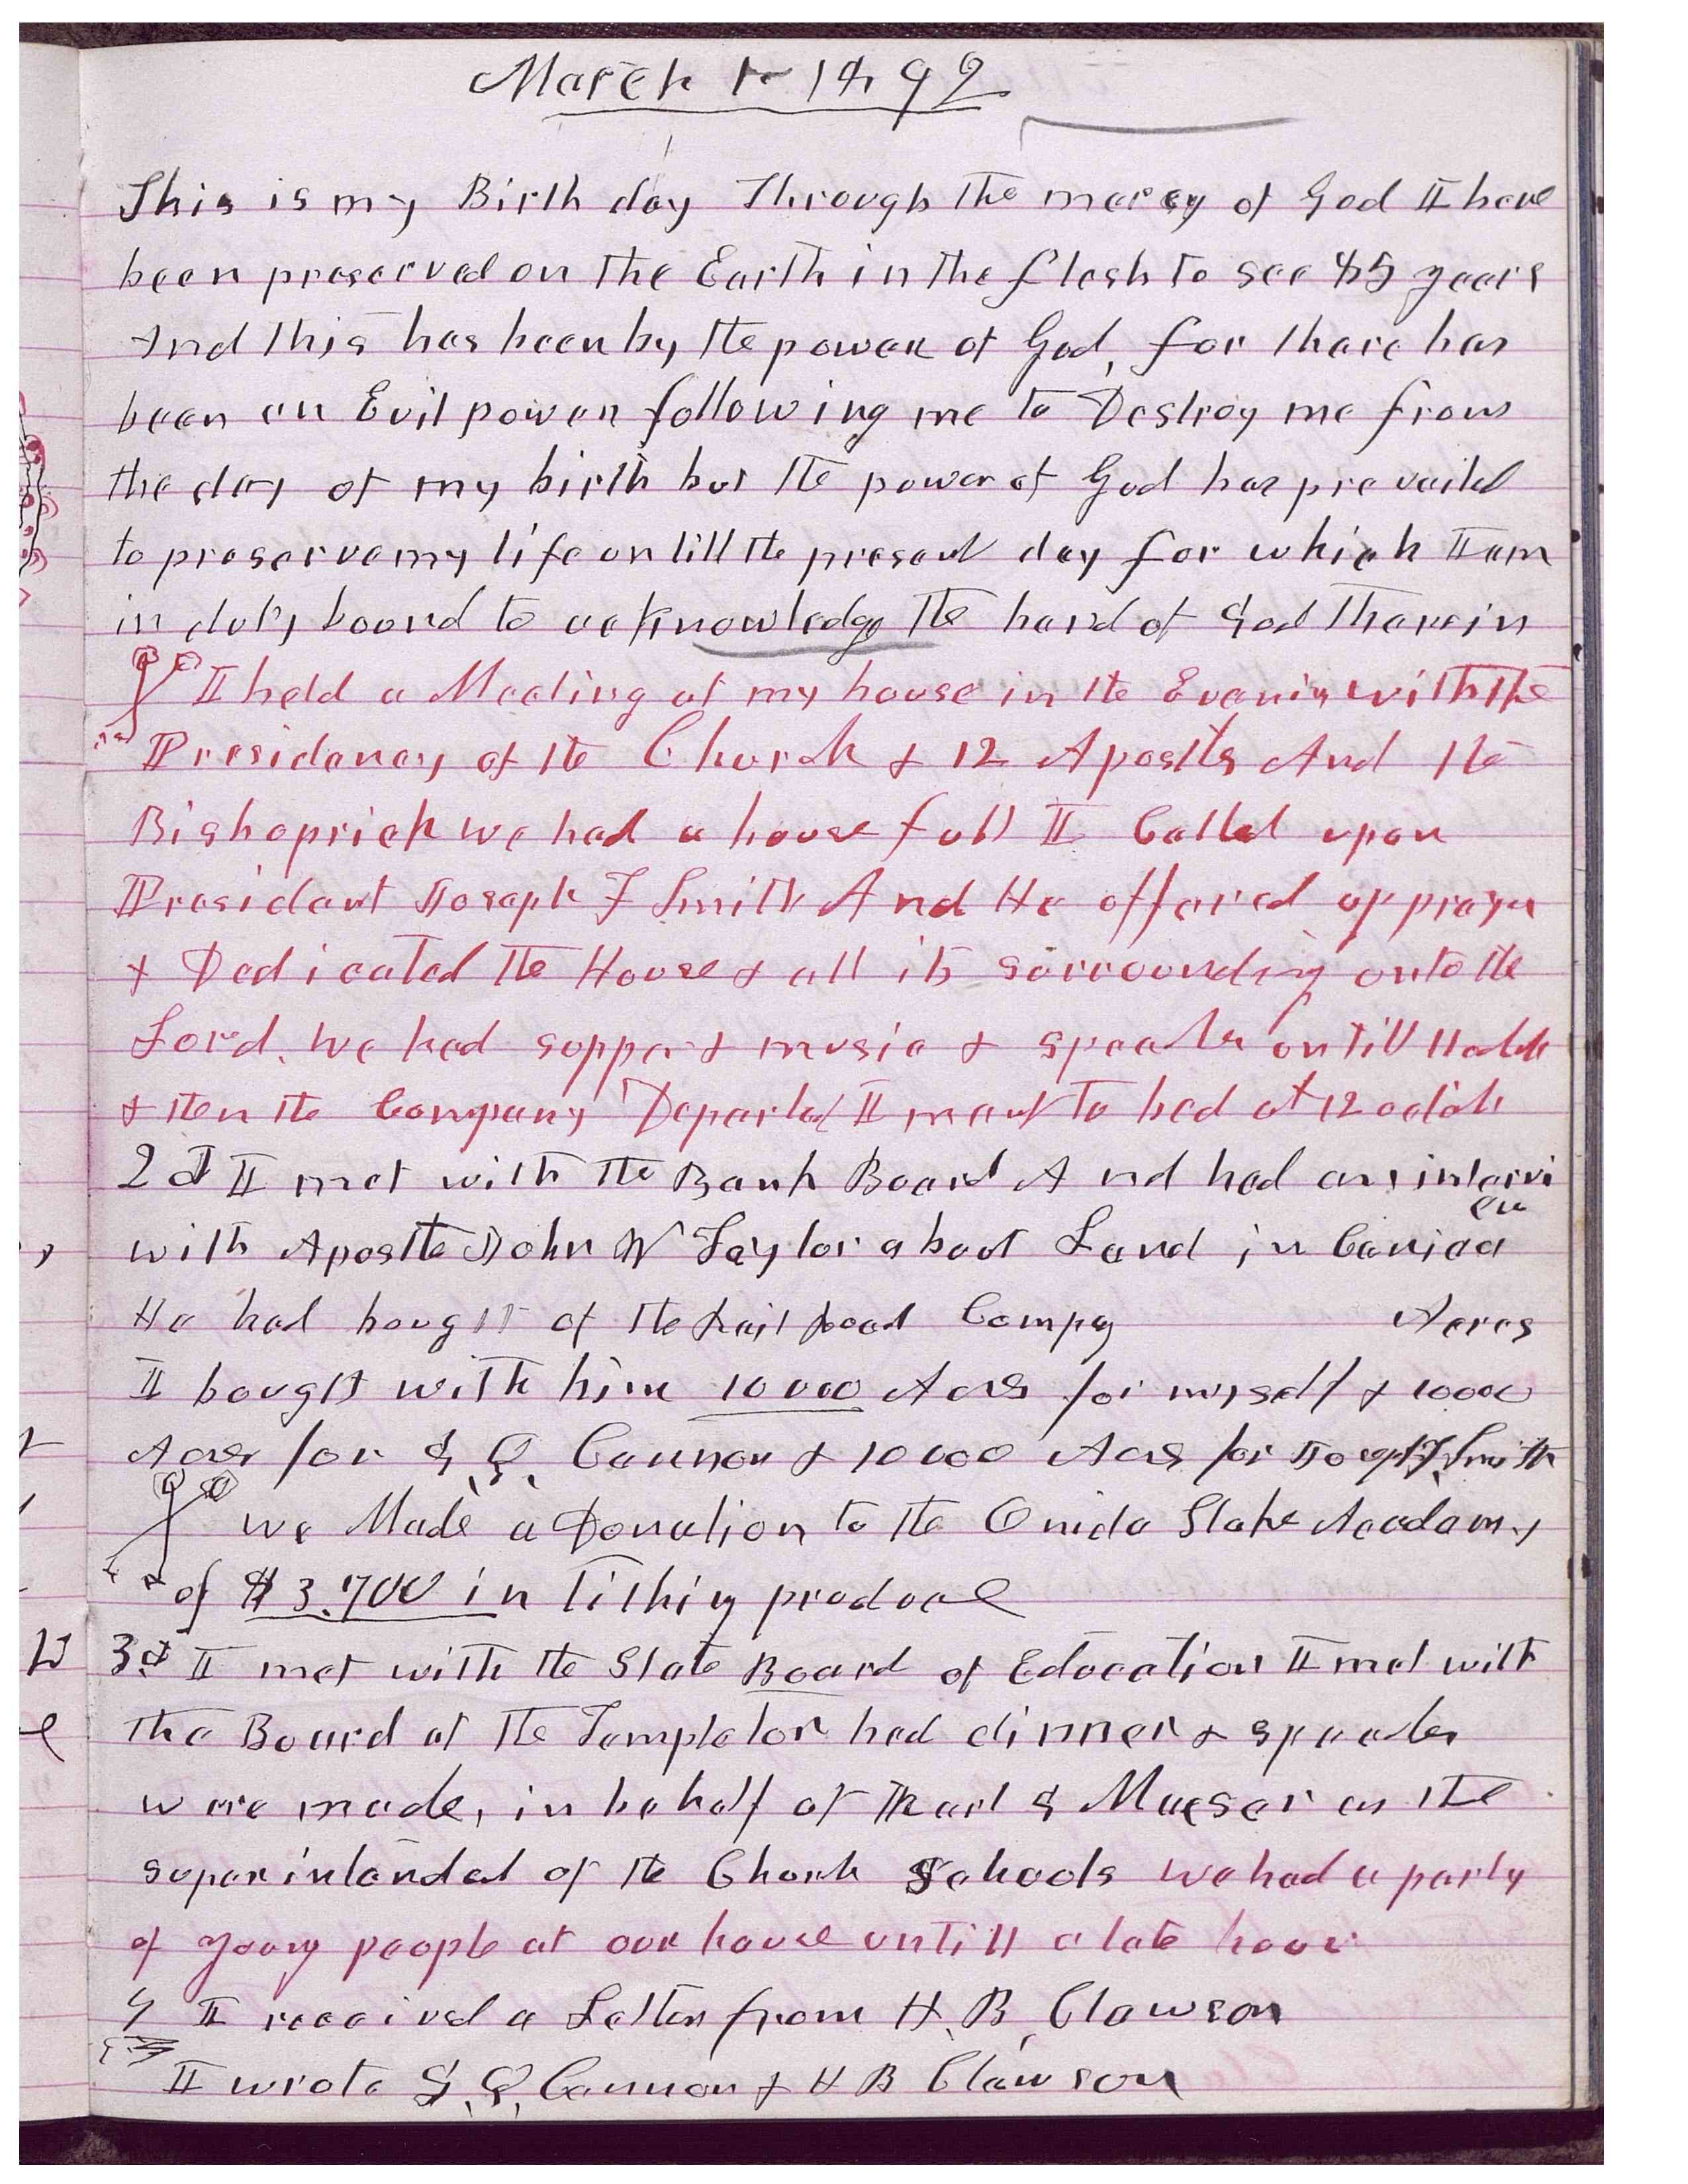 March 1 1892
This is my Birth day Through the mercy of God I have
been preserved on the Earth in the flesh to see 85 years
And this has been by the power of God, for there has
been an Evil power following me to Destroy me from
the day of my birth but the power of God has prevailed
to preserve my life untill the present day for which I am
in duty bound to acknowledge the hand of God therein
I held a Meeting at my house in the Evening with the
Presidency of the Church & 12 Apostls And the
Bishoprick we had a house full I Called upon
President Joseph F Smith And He offered up prayer
& Dedicated the House & all its surrounding unto the
Lord. We had supper & music & speeches untill 11 oclok
& then the Company Departed I went to bed at 12 oclok
2d I met with the Bank Board And had an intervi
ew
with Apostle John W Taylor about Land in Canida
He had bought of the Rail Road Compay Acres
I bought with him 10000 Acrs for myself & 10000
Acrs for G. Q. Cannon & 10000 Acrs for Joseph F. Smith
we Made a Donation to the Onida Stake Academy
of $3.700 in tithing produce
3d I met with the State Board of Education I met with
the Board at the Templeton had dinner & speeches
were made, in behalf of Karl G Maeser as the
superintended of the Church Schools we had a party
of young people at our house untill a late hour
4 I received a Letter from H. B. Clawson
I wrote G. Q. Cannon & H B Clawson